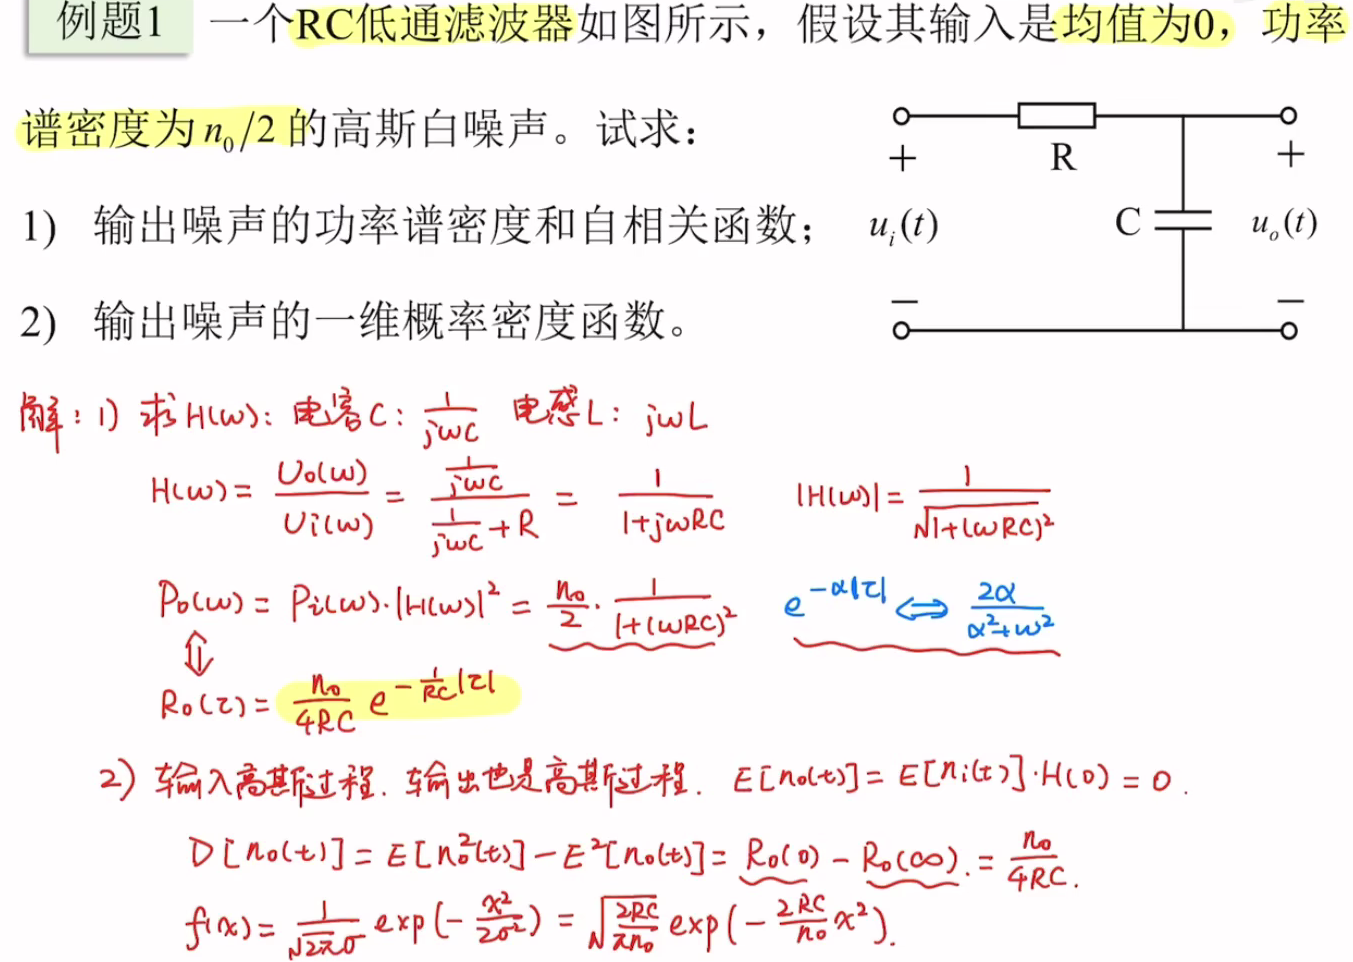 例题1 一个RC低通滤波器如图所示，假设其输入是均值为0，功率
谱密度为n₀/2的高斯白噪声。试求：
1) 输出噪声的功率谱密度和自相关函数；
2) 输出噪声的一维概率密度函数。
R
+ +
uᵢ(t) C uₒ(t)
− −
解：1) 求H(ω)：电容C：1/(jωC) 电感L：jωL
H(ω) = Uo(ω)/Ui(ω) = (1/(jωC))/(1/(jωC)+R) = 1/(1+jωRC) |H(ω)| = 1/√(1+(ωRC)²)
Po(ω) = Pi(ω)·|H(ω)|² = n₀/2 · 1/(1+(ωRC)²) e^(-α|τ|) ⇔ 2α/(α²+ω²)
⇕
Ro(τ) = n₀/(4RC) e^(-(1/RC)|τ|)
2) 输入高斯过程.输出也是高斯过程. E[no(t)] = E[ni(t)]·H(0) = 0.
D[no(t)] = E[no²(t)] − E²[no(t)] = Ro(0) − Ro(∞). = n₀/(4RC).
f(x) = 1/(√(2π)σ) exp(−x²/(2σ²)) = √(2RC/(πn₀)) exp(−(2RC/n₀)x²).